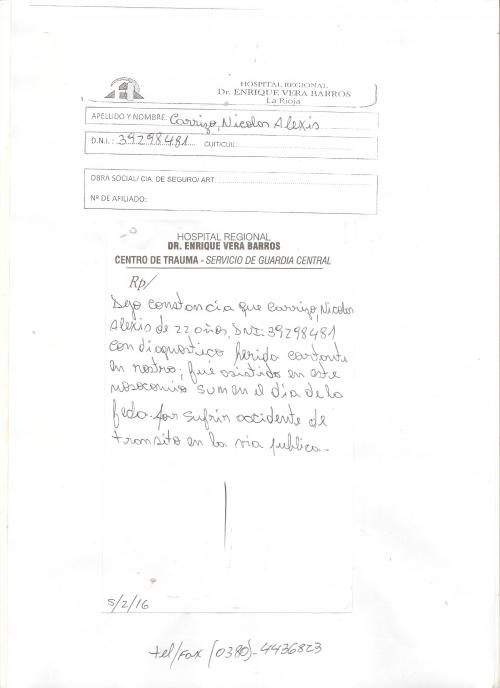 HOSPITAL REGIONAL
Dr. ENRIQUE VERA BARROS
La Rioja
APELLIDO Y NOMBRE: Carrizo, Nicolos Alexis
D.N.I.: 39298481 CUIT/CUIL:
OBRA SOCIAL/ CIA. DE SEGURO/ ART
Nº DE AFILIADO:
HOSPITAL REGIONAL
DR. ENRIQUE VERA BARROS
CENTRO DE TRAUMA - SERVICIO DE GUARDIA CENTRAL
Rp/
Dejo constancia que Carrizo, Nicolos
Alexis de 22 años, DNI: 39298481
con diagnostico herida cortante
en rostro; fué asistido en este
nosocomio en el día de la
fecha. por sufrir accidente de
transito en la via publica.-
5/2/16
tel/fax (0380)-4436823